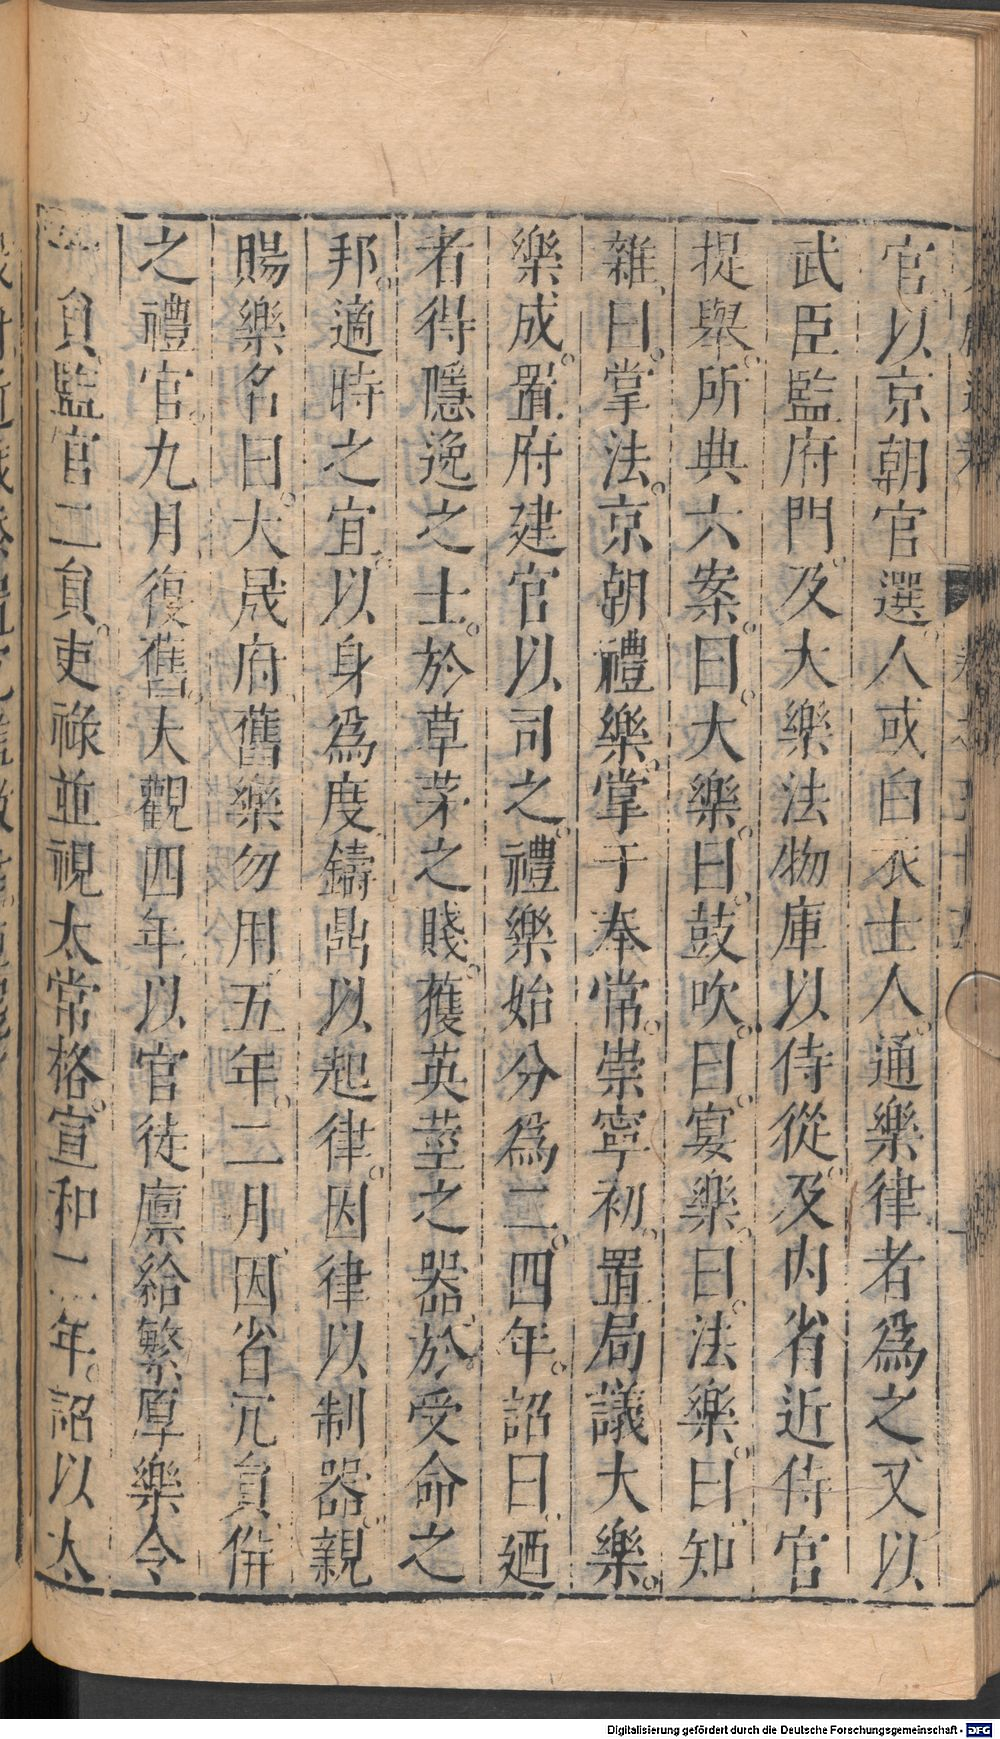 官以京朝官選人或白衣士人通樂律者爲之又以
武臣監府門及大樂法物庫以侍從及内省近侍官
提舉所典六案曰大樂曰鼓吹曰宴樂曰法樂曰知
雜曰掌法京朝禮樂掌于奉常崇寧初置局議大樂
樂成置府建官以司之禮樂始分爲二四年詔曰廼
者得隱逸之士於草茅之賤獲英莖之器於受命之
邦適時之宜以身爲度鑄鼎以起律因律以制器親
賜樂名曰大晟府舊樂勿用五年二月因省冗負併
之禮官九月復舊大觀四年以官徒廪給繁厚樂令
一負監官二負吏祿並視太常格宣和二年詔以大
Digitalisierung gefördert durch die Deutsche Forschungsgemeinschaft - DFG